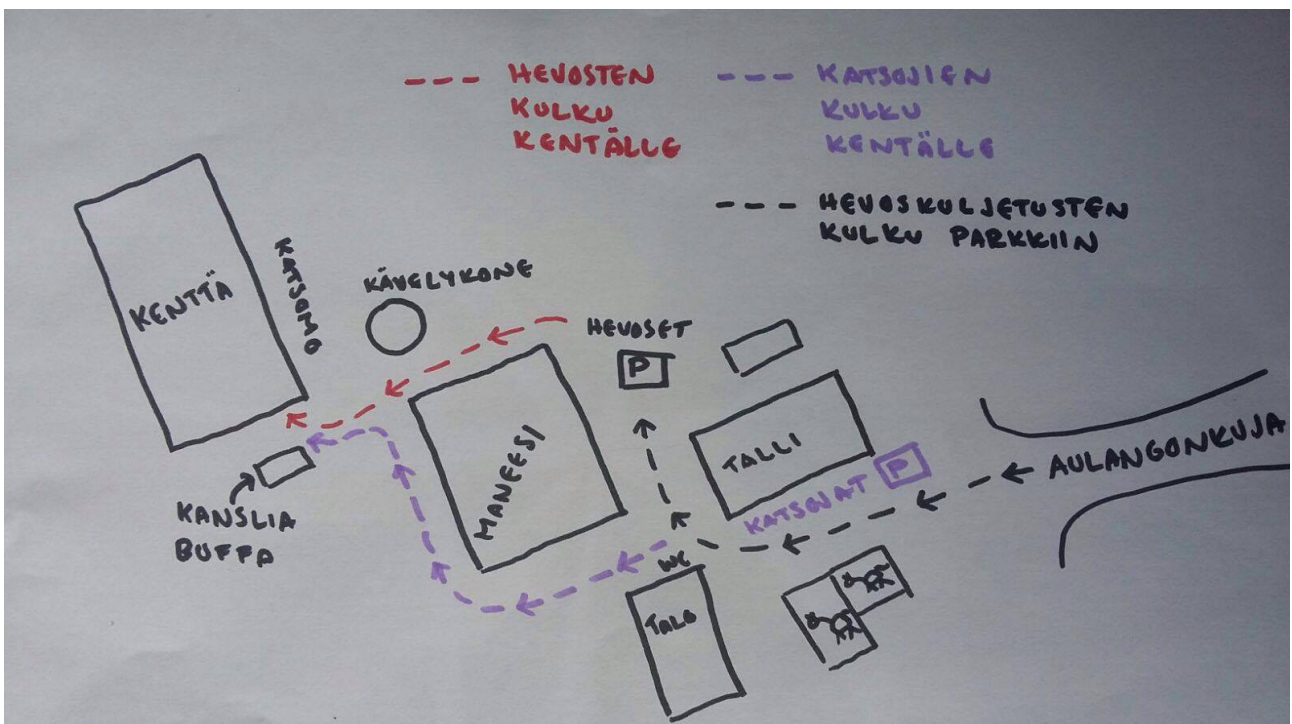 HEVOSTEN
KULKU
KENTÄLLE
KATSOJIEN
KULKU
KENTÄLLE
HEVOSKULJETUSTEN
KULKU PARKKIIN
KENTTÄ
KATSOMO
KÄVELYKONE
HEVOSET
P
MANEESI
TALLI
KATSOJAT P
AULANGONKUJA
KANSLIA
BUFFA
WC
TALO